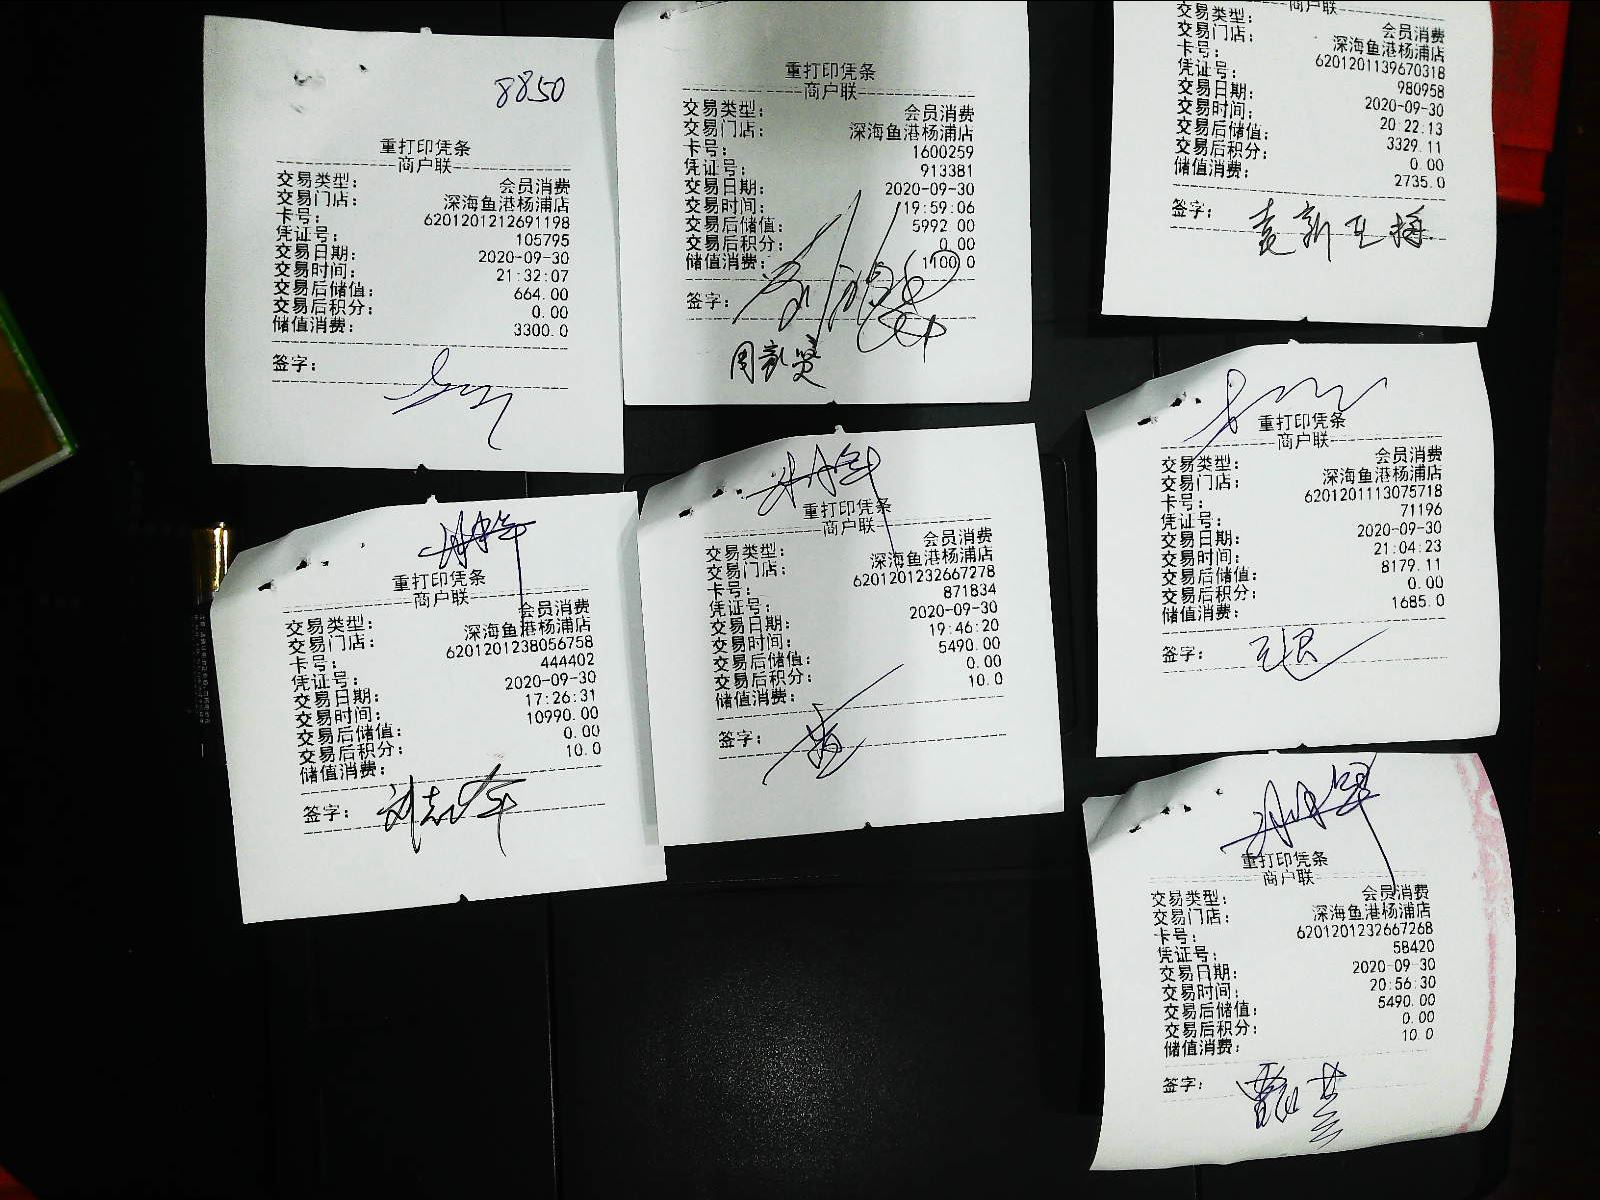 8850
重打印凭条
商户联
交易类型: 会员消费
交易门店: 深海鱼港杨浦店
卡号: 6201201212691198
凭证号: 105795
交易日期: 2020-09-30
交易时间: 21:32:07
交易后储值: 664.00
交易后积分: 0.00
储值消费: 3300.0
签字:
重打印凭条
商户联
交易类型: 会员消费
交易门店: 深海鱼港杨浦店
卡号: 1600259
凭证号: 913381
交易日期: 2020-09-30
交易时间: 19:59:06
交易后储值: 5992.00
交易后积分: 0.00
储值消费: 1100.0
签字:
商户联
交易类型: 会员消费
交易门店: 深海鱼港杨浦店
卡号: 6201201139670318
凭证号: 980958
交易日期: 2020-09-30
交易时间: 20:22:13
交易后储值: 3329.11
交易后积分: 0.00
储值消费: 2735.0
签字:
重打印凭条
商户联
交易类型: 会员消费
交易门店: 深海鱼港杨浦店
卡号: 6201201238056758
凭证号: 444402
交易日期: 2020-09-30
交易时间: 17:26:31
交易后储值: 10990.00
交易后积分: 0.00
储值消费: 10.0
签字: 刘志军
重打印凭条
商户联
交易类型: 会员消费
交易门店: 深海鱼港杨浦店
卡号: 6201201232667278
凭证号: 871834
交易日期: 2020-09-30
交易时间: 19:46:20
交易后储值: 5490.00
交易后积分: 0.00
储值消费: 10.0
签字:
重打印凭条
商户联
交易类型: 会员消费
交易门店: 深海鱼港杨浦店
卡号: 6201201113075718
凭证号: 71196
交易日期: 2020-09-30
交易时间: 21:04:23
交易后储值: 8179.11
交易后积分: 0.00
储值消费: 1685.0
签字:
重打印凭条
商户联
交易类型: 会员消费
交易门店: 深海鱼港杨浦店
卡号: 6201201232667268
凭证号: 58420
交易日期: 2020-09-30
交易时间: 20:56:30
交易后储值: 5490.00
交易后积分: 0.00
储值消费: 10.0
签字: